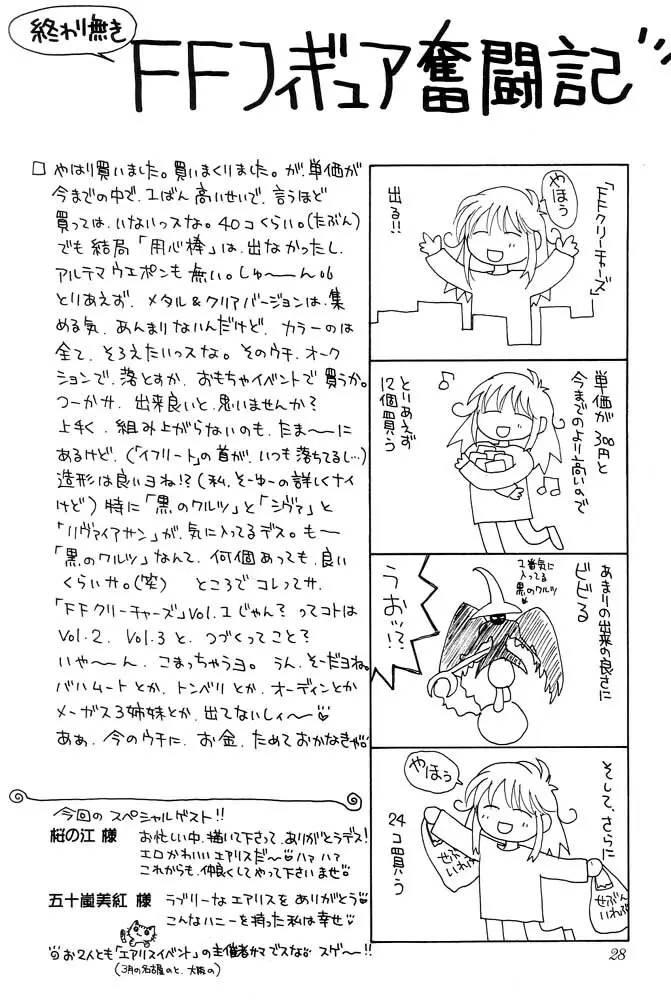 終わり無き
FFフィギュア奮闘記
□ やはり買いました。買いまくりました。が、単価が
今までの中で、1ばん高いせいで、言うほど
買っては、いないっスな。40コくらい。(たぶん)
でも結局「用心棒」は、出なかったし、
アルテマウエポンも無い。しゅ〜〜ん。。
とりあえず、メタル&クリアバージョンは、集
める気、あんまりないんだけど、カラーのは
全て、そろえたいっスな。そのウチ、オーク
ションで、落とすか、おもちゃイベントで買うか。
つーかサ、出来良いと、思いませんか?
上手く、組み上がらないのも、たま〜に
あるけど、(「イフリート」の首が、いつも落ちてるし…)
造形は良いヨね!?(私、そーゆーの詳しくナイ
けど)特に「黒のワルツ」と「シヴァ」と
「リヴァイアサン」が、気に入ってるデス。も〜
「黒のワルツ」なんて、何個あっても、良い
くらいサ。(笑) ところでコレってサ、
「FFクリーチャーズ」Vol.1じゃん? ってコトは
Vol.2、Vol.3と、つづくってこと?
いや〜〜ん、こまっちゃうヨ。うん、そーだヨね。
バハムートとか、トンベリとか、オーディンとか
メーガス3姉妹とか、出てないしィ〜
ああ、今のウチに、お金、ためておかなきゃ
今回のスペシャルゲスト!!
桜の江 様 お忙しい中、描いて下さって、ありがとうデス!
エロかわいいエアリスだ〜ハァハァ
これからも、仲良くしてやって下さいませ
五十嵐美紅 様 ラブリーなエアリスをありがとう
こんなハニーを持った私は幸せ
お2人とも「エアリスイベント」の主催者サマでスな スゲ〜!!
(3月の名古屋のと、大阪の)
「FFクリーチャーズ」
出る!!
やほぅ
単価が300円と
今までのより高いので
とりあえず
12個買う
あまりの出来の良さに
ビビる
1番気に
入ってる
黒のワルツ
うおッ!?
そして、さらに
24コ買う
やほぅ
せぶん
いれぶ
せぶん
いれぶ
28